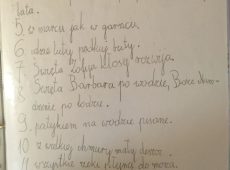 lata.
5. w marcu jak w garncu.
6 idzie luty podkuj buty.
7 Święta Zofija kłosy rozwija.
8 Święta Barbara po wodzie, Boże Naro-
dzenie po lodzie.
9. patykiem na wodzie pisane.
10 z wielkiej chmury mały deszcz.
11 wszystkie rzeki płyną do morza.